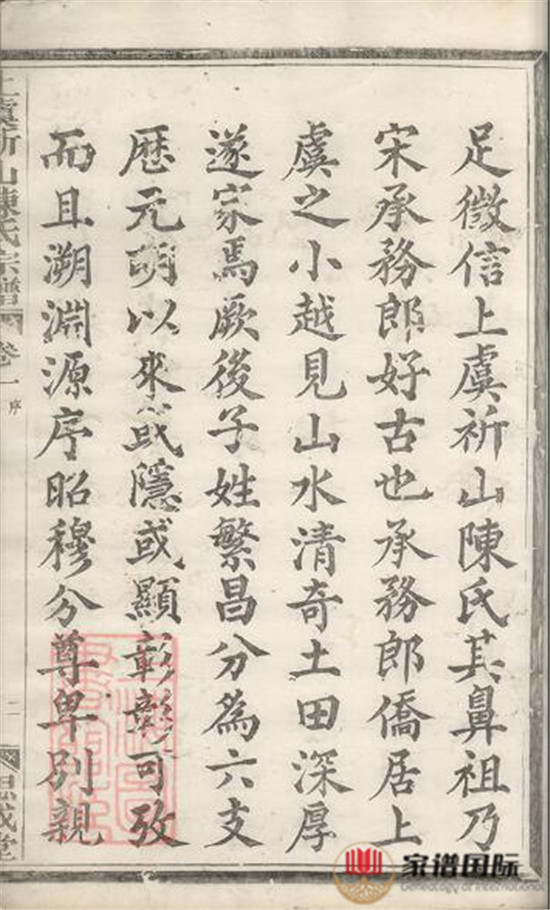 足徵信上虞祈山陳氏其鼻祖乃
宋承務郎好古也承務郎僑居上
虞之小越見山水清奇土田深厚
遂家焉厥後子姓繁昌分為六支
歷元明以來或隱或顯彰彰可攷
而且溯淵源序昭穆分尊卑別親
上虞祈山陳氏宗譜
卷一
序
二
思成堂
家谱国际
Genealogy of International